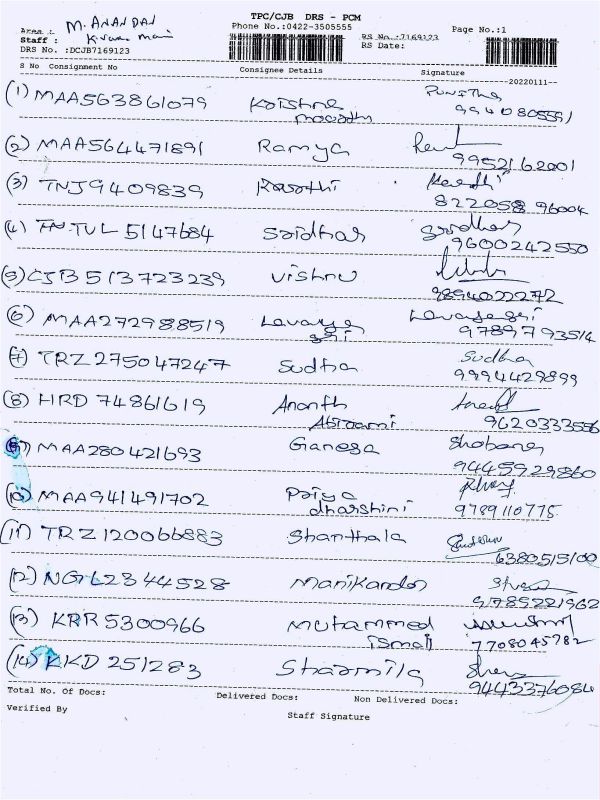 TPC/CJB DRS - PCM
Area : M. ANANDAN
Phone No.:0422-3505555 Page No.:1
Staff :
RS No.:7169123
DRS No. :DCJB7169123 RS Date:
S No Consignment No Consignee Details Signature
20220111
Punitha
(1) MAA563861079 Krishna
moorthy 9940805591
(2) MAA564471891 Ramya
9952162001
(3) TNJ9409839 Keerthi Keerthi
822058 96004
(4) TNTUL 5147684 Sridhar Sridhar
9600242550
(5) CJB513723239 Vishnu
9894022272
(6) MAA272988519 Lavanya
gri
9789793514
(7) TRZ 275047247 Sudha Sudha
9994429899
(8) HRD 74861619 Ananth
Abirami 9620333556
(9) MAA280421693 Ganesa Shobana
9445929860
(10) MAA941491702 Priya
dharshini 9789110775
(11) TRZ120066883 Shanthala
6380515100
(12) NGL2344528 Manikandan
9789221962
(13) KRR5300966 Muhammed
ismail 7708045782
(14) KKD 251283 Sharmila
9443376084
Total No. Of Docs: Delivered Docs: Non Delivered Docs:
Verified By
Staff Signature